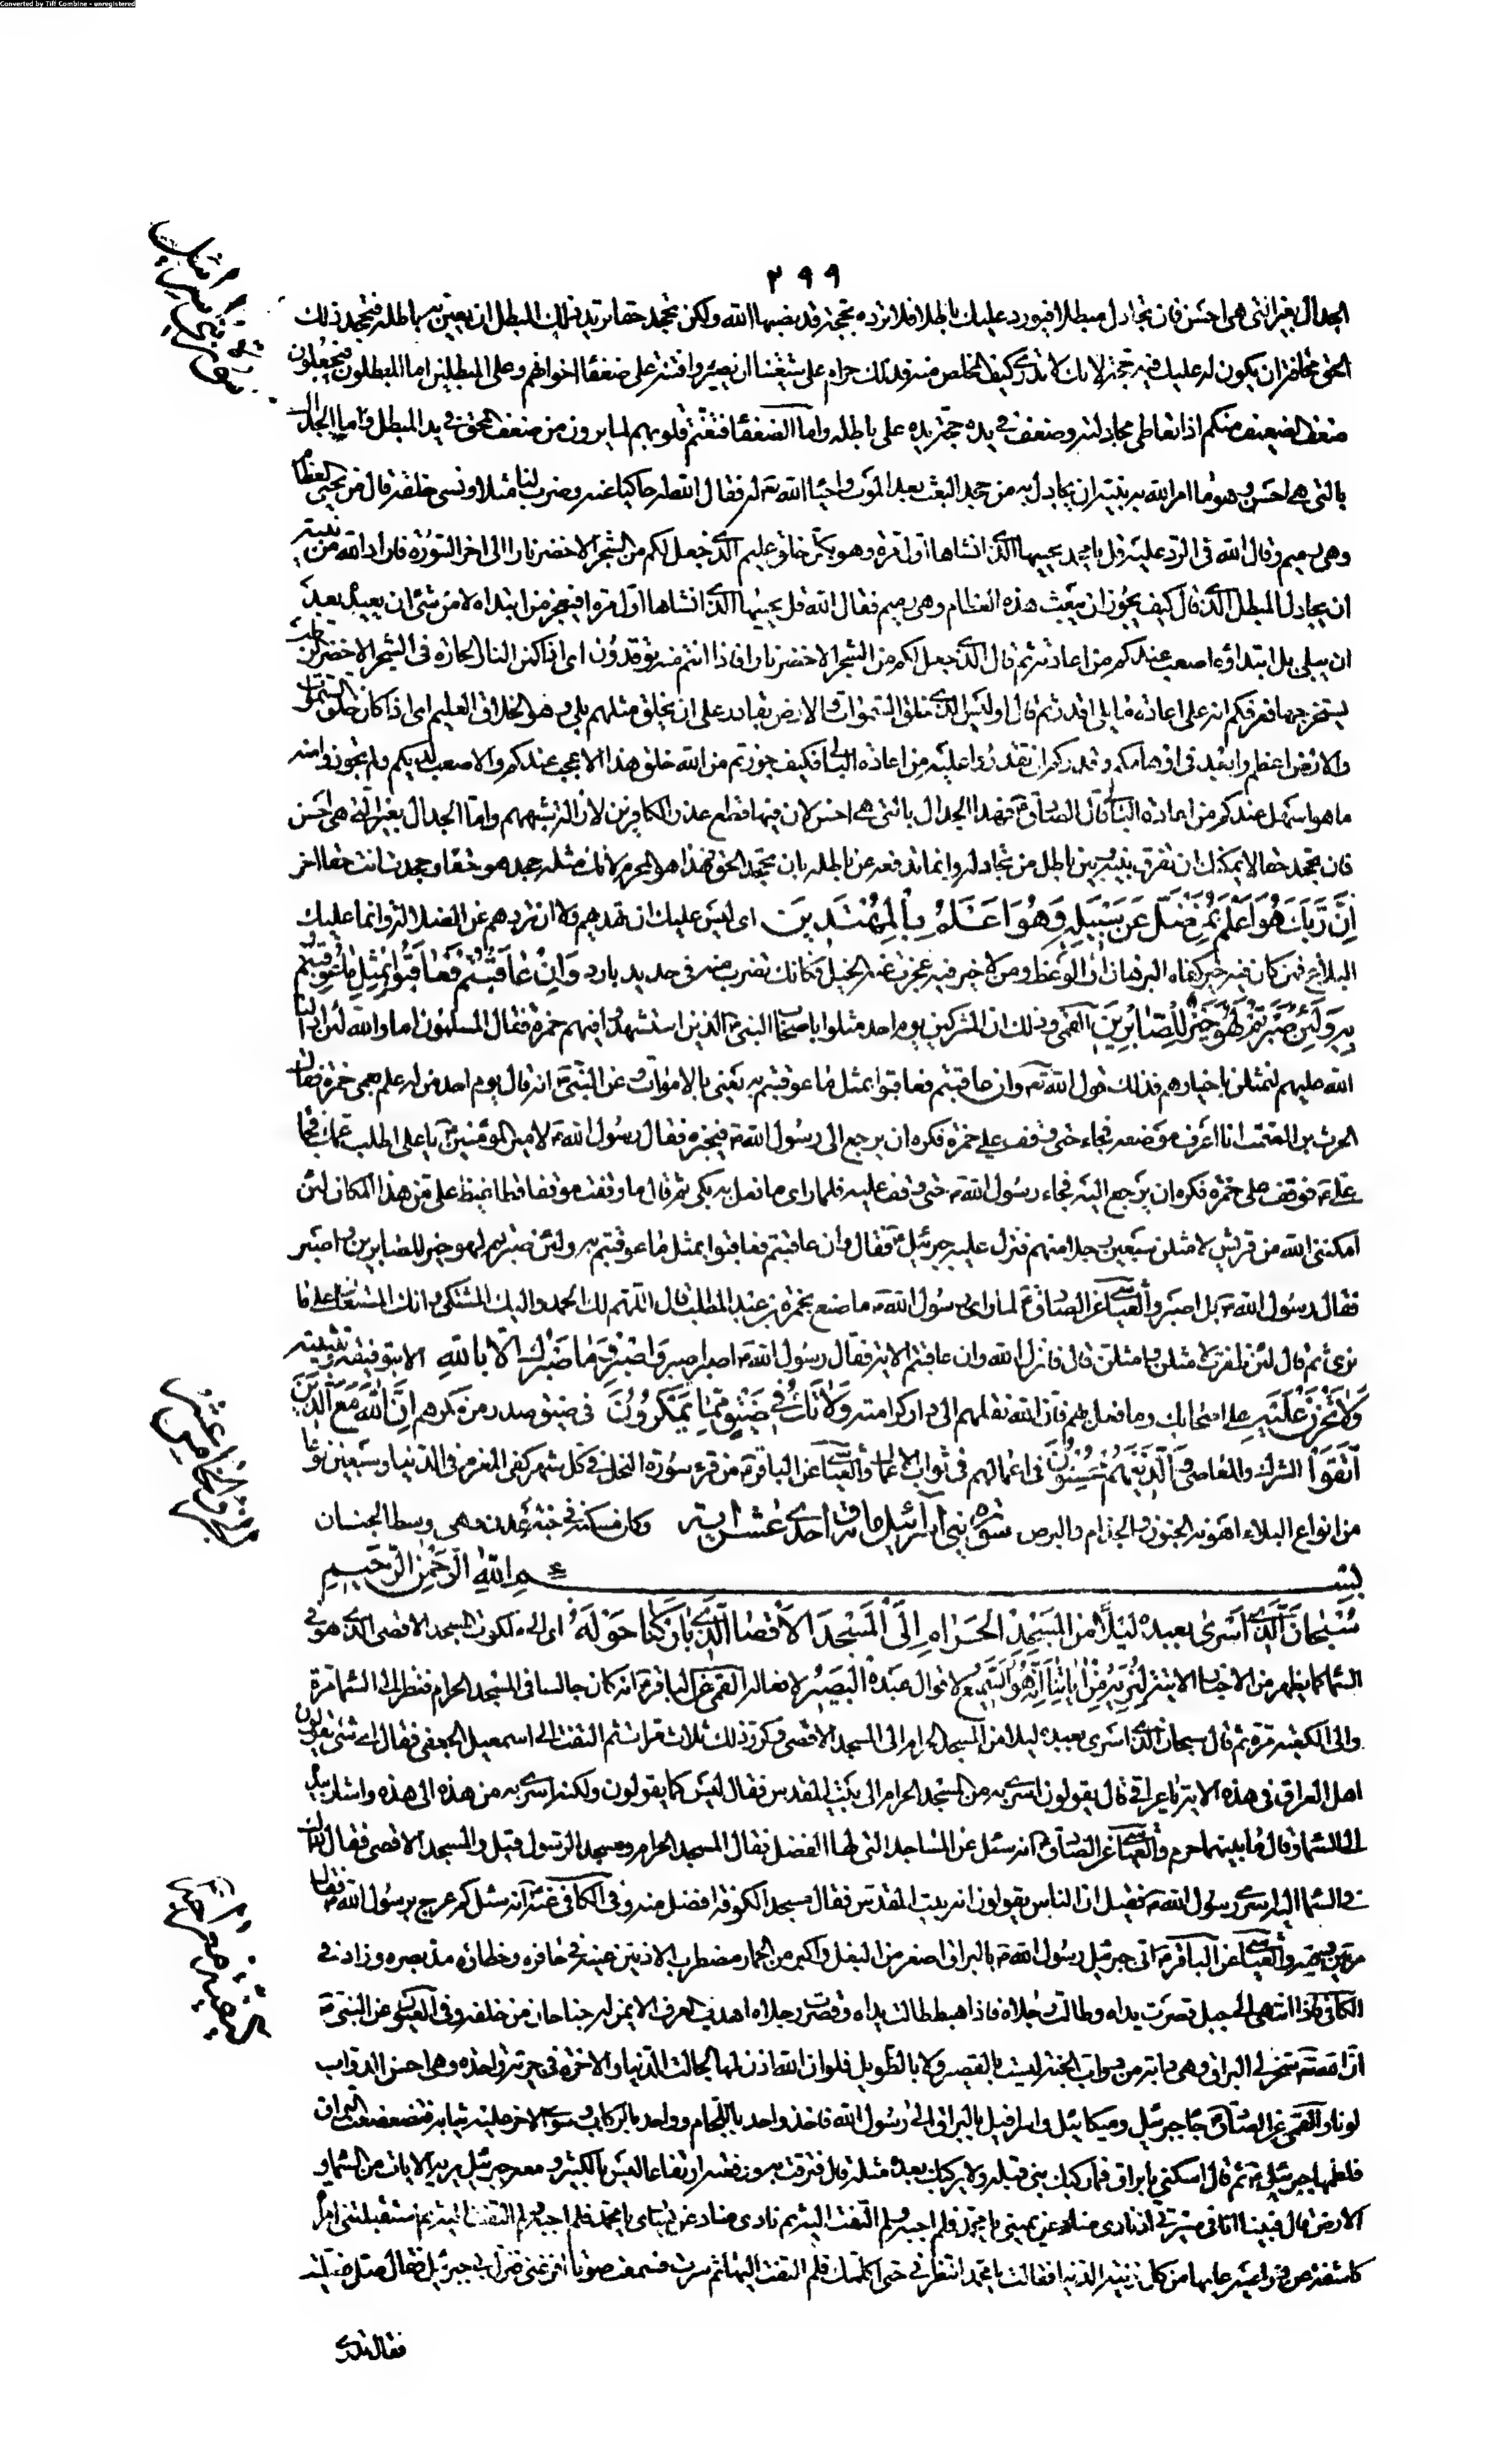 Converted by Tiff Combine - unregistered
٢٩٩
الجدال بغير التي هي احسن فان تجادل مبطلا فيورد عليك باطلا فلا ترده بحجة قد نصبها الله ولكن تجحد حقا يريد ذلك المبطل ان يعين به باطله فتجحد ذلك
الحق مخافة ان يكون له عليك فيه حجة لانك لا تدري كيف المخلص منه فذلك حرام على شيعتنا ان يصيروا فتنة على ضعفاء اخوانهم وعلى المبطلين اما المبطلون فيجعلون
ضعف الضعيف منكم اذا تعاطى مجادلته وضعف في يده حجة له على باطله واما الضعفاء فتغتم قلوبهم لما يرون من ضعف المحق في يد المبطل واما الجدال
بالتي هي احسن وهو ما امر الله به نبيه ان يجادل به من جحد البعث بعد الموت واحياء الله تع له فقال الله له حاكيا عنه وضرب لنا مثلا ونسي خلقه قال من يحيي العظام
وهي رميم وقال الله في الرد عليه قل يا محمد يحييها الذي انشاها اول مرة وهو بكل خلق عليم الذي جعل لكم من الشجر الاخضر نارا الى اخر السورة فاراد الله من نبيه
ان يجادل المبطل الذي قال كيف يجوز ان يبعث هذه العظام وهي رميم فقال الله قل يحييها الذي انشاها اول مرة افيعجز من ابتداه لا من شئ ان يعيده بعد
ان يبلى بل ابتداؤه اصعب عندكم من اعادته ثم قال الذي جعل لكم من الشجر الاخضر نارا فاذا انتم منه توقدون اى اذا كمن النار الحارة في الشجر الاخضر الرطب
يستخرجها فعرفكم انه على اعادة ما بلي اقدر ثم قال اوليس الذي خلق السموات والارض بقادر على ان يخلق مثلهم بلى وهو الخلاق العليم اى اذا كان خلق السموات
والارض اعظم وابعد في اوهامكم وقدركم ان تقدروا عليه من اعادة البالي فكيف جوزتم من الله خلق هذا الاعجب عندكم والاصعب لديكم ولم تجوزوا منه
ما هو اسهل عندكم من اعادة البالي قال الصادق ع فهذا الجدال بالتي هي احسن لان فيها قطع عذر الكافرين وازالة شبههم واما الجدال بغير التي هي احسن
فان تجحد حقا لا يمكنك ان تفرق بينه وبين باطل من تجادله وانما تدفعه عن باطله بان تجحد الحق فهذا هو المحرم لانك مثله جحد هو حقا وجحدت انت حقا اخر
اِنَّ رَبَّكَ هُوَ اَعْلَمُ بِمَنْ ضَلَّ عَنْ سَبِيلِهِ وَهُوَ اَعْلَمُ بِالْمُهْتَدِينَ اى ليس عليك ان تهديهم ولا ان تردهم عن الضلالة وانما عليك
البلاغ فمن كان فيه خير كفاه البرهان او الوعظ ومن لا خير فيه عجزت عنه الحيل فكانك تضرب منه في حديد بارد وَاِنْ عَاقَبْتُمْ فَعَاقِبُوا بِمِثْلِ مَا عُوقِبْتُمْ
بِهِ وَلَئِنْ صَبَرْتُمْ لَهُوَ خَيْرٌ لِلصَّابِرِينَ القمي وذلك ان المشركين يوم احد مثلوا باصحاب النبي ص الذين استشهدوا فيهم حمزة فقال المسلمون اما والله لئن ادالنا
الله عليهم لنمثلن باخيارهم فذلك قول الله تع وان عاقبتم فعاقبوا بمثل ما عوقبتم به يعني بالاموات وعن النبي ص انه قال يوم احد من له علم بعمي حمزة فقال
الحرث بن الصمت انا اعرف موضعه فجاء حتى وقف على حمزة فكره ان يرجع الى رسول الله ص فيخبره فقال رسول الله ص لامير المؤمنين ع يا علي اطلب عمك فجاء
علي ع فوقف على حمزة فكره ان يرجع اليه فجاء رسول الله ص حتى وقف عليه فلما راى ما فعل به بكى ثم قال ما وقفت موقفا قط اغيظ علي من هذا المكان لئن
امكنني الله من قريش لامثلن سبعين رجلا منهم فنزل عليه جبرئيل ع فقال وان عاقبتم فعاقبوا بمثل ما عوقبتم به ولئن صبرتم لهو خير للصابرين واصبر
فقال رسول الله ص بل اصبر والعياشي عن الصادق ع لما راى رسول الله ص ما صنع بحمزة بن عبد المطلب قال اللهم لك الحمد واليك المشتكى وانت المستعان على ما
نرى ثم قال لئن ظفرت لامثلن وامثلن قال فانزل الله وان عاقبتم الاية فقال رسول الله ص اصبر اصبر وَاصْبِرْ وَمَا صَبْرُكَ اِلَّا بِاللّهِ الا بتوفيقه وتثبيته
وَلَا تَحْزَنْ عَلَيْهِمْ على اصحابك وما فعل بهم فان الله نقلهم الى دار كرامته وَلَا تَكُ فِي ضَيْقٍ مِمَّا يَمْكُرُونَ في ضيق صدر من مكرهم اِنَّ اللّهَ مَعَ الَّذِينَ
اتَّقَوْا الشرك والمعاصي وَالَّذِينَ هُمْ مُحْسِنُونَ في اعمالهم في ثواب الاعمال والعياشي عن الباقر ع من قرء سورة النحل في كل شهر كفي المغرم في الدنيا وسبعين نوعا
من انواع البلاء اهونه الجنون والجذام والبرص سورة بني اسرائيل مائة واحدى عشر اية وكان مسكنه في جنة عدن وهي وسط الجنان
بِسْمِ اللّهِ الرَّحْمنِ الرَّحِيمِ
سُبْحَانَ الَّذِي اَسْرى بِعَبْدِهِ لَيْلًا مِنَ الْمَسْجِدِ الْحَرَامِ اِلَى الْمَسْجِدِ الْاَقْصَا الَّذِي بَارَكْنَا حَوْلَهُ اى الى ملكوت المسجد الاقصى الذي هو في
السماء كما يظهر من الاخبار الاتية لِنُرِيَهُ مِنْ ايَاتِنَا اِنَّهُ هُوَ السَّمِيعُ لاقوال عبده الْبَصِيرُ لافعاله القمي عن الباقر ع انه كان جالسا في المسجد الحرام فنظر الى السماء مرة
والى الكعبة مرة ثم قال سبحان الذي اسرى بعبده ليلا من المسجد الحرام الى المسجد الاقصى وكرر ذلك ثلاث مرات ثم التفت الى اسمعيل الجعفي فقال اى شئ يقولون
اهل العراق في هذه الاية يا عراقي قال يقولون اسرى به من المسجد الحرام الى بيت المقدس فقال ليس كما يقولون ولكنه اسرى به من هذه الى هذه واشار بيده
الى السماء وقال ما بينهما حرم والعياشي عن الصادق ع انه سئل عن المساجد التي لها الفضل فقال المسجد الحرام ومسجد الرسول قيل والمسجد الاقصى فقال ذاك
في السماء اليه اسرى رسول الله ص فقيل ان الناس يقولون انه بيت المقدس فقال مسجد الكوفة افضل منه وفي الكافي عنه ع انه سئل كم عرج برسول الله ص فقال
مرتين وفيه والعياشي عن الباقر ع اتى جبرئيل رسول الله ص بالبراق اصغر من البغل واكبر من الحمار مضطرب الاذنين عينه في حافره وخطاه مد بصره وزاد في
الكافي فاذا انتهى الى جبل قصرت يداه وطالت رجلاه فاذا هبط طالت يداه وقصرت رجلاه اهدب العرف الايمن له جناحان من خلفه وفي العيون عن النبي ص
ان الله تع سخر لي البراق وهي دابة من دواب الجنة ليست بالقصير ولا بالطويل فلو ان الله اذن لها لجالت الدنيا والاخرة في جرية واحدة وهي احسن الدواب
لونا والقمي عن الصادق ع جاء جبرئيل وميكائيل واسرافيل بالبراق الى رسول الله فاخذ واحد باللجام وواحد بالركاب وسوى الاخر عليه ثيابه فتضعضعت البراق
فلطمها جبرئيل ع ثم قال اسكني يا براق فما ركبك نبي قبله ولا يركبك بعده مثله قال فترقت به ورفعته ارتفاعا ليس بالكثير ومعه جبرئيل يريه الايات من السماء و
الارض قال فبينا انا في مسيري اذ نادى مناد عن يميني يا محمد فلم اجبه ولم التفت اليه ثم نادى مناد عن يساري يا محمد فلم اجبه ولم التفت اليه ثم استقبلتني امراة
كاشفة عن ذراعيها عليها من كل زينة الدنيا فقالت يا محمد انتظرني حتى اكلمك فلم التفت اليها ثم سرت فسمعت صوتا افزعني فنزل بي جبرئيل فقال صل فصليت
فقال تدري